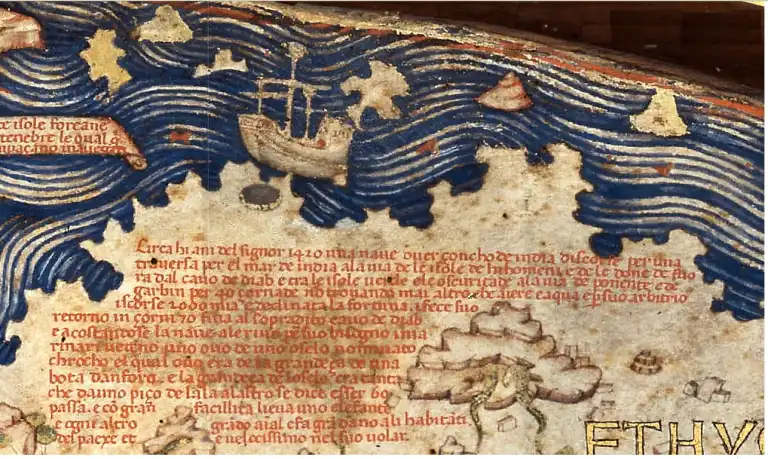 te isole forçane
tenebre le qual q
Circa hi ani del signor 1420 una naue ouer çoncho de india discorse per una
trauersa per el mar de india ala uia de le isole de hi homeni e de le done de fuo
ra dal cauo de diab e tra le isole uerde e le oscuritade ala uia de ponente e de
garbin per 40 çornade nō trouando mai altro che aiere e aqua e p̄ suo arbitrio
iscorse 2000 mia e declinata la fortuna i fece suo
retorno in çorni 70 fina al sopradito cauo de diab
e acostandose la naue ale riue p̄ suo bisogno i ma
rinari uedeno uno ouo de uno oselo nominato
chrocho el qual ouo era de la grandeça de una
bota danfora e la grandeça de loselo era tanta
che da uno piço de lala alaltro se dice esser 60
passa e cō gran facilita lieua uno elefante
e ogni altro grādo aīal e fa grā dano a li habitāti
del paexe et e uelocissimo nel suo uolar.
ETHYO